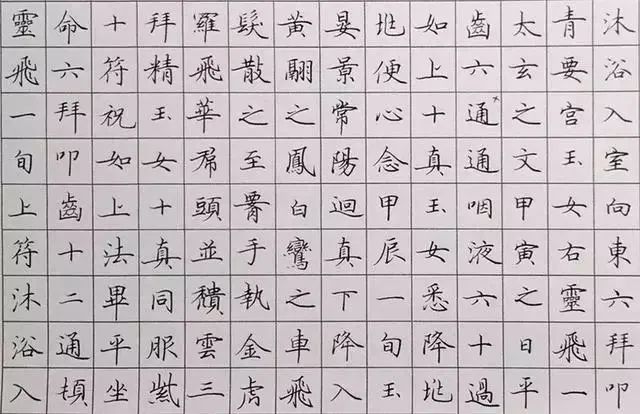 靈飛一旬上符沐浴入
命六拜叩齒十二通頓
十符祝如上法畢平坐
拜精玉女十真同服紫
羅飛華帬頭並穨雲三
髮散之至腰手執金虎
黃翮之鳳白鸞之車飛
晏景常陽迴真下降入
兆便心念甲辰一旬玉
如上十真玉女悉降兆
齒六通通咽液六十過
太玄之文甲寅之日平
青要宮玉女右靈飛一
沐浴入室向東六拜叩